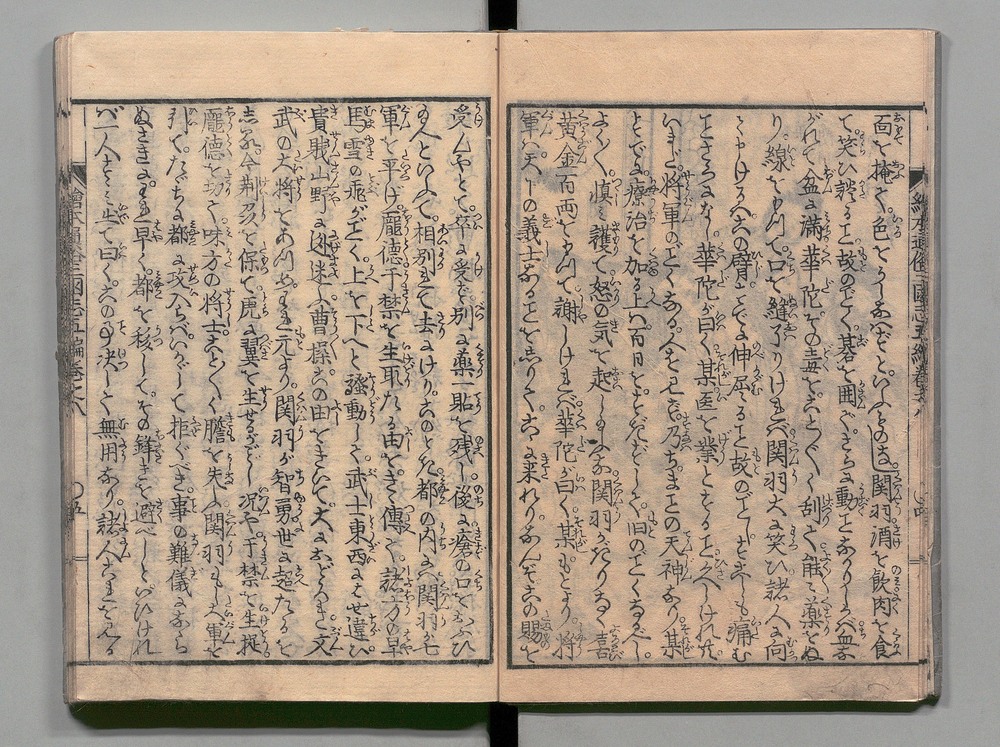 面を掩て色をうしなはずといふものなし関羽酒を飲肉を食
て笑ひ談ること故のごとく碁を囲でさらに動ことなかりしかバ血な
がれて盆に満華陀その毒をことごとく刮り能薬をぬ
り線をもつて口を縫了りけれバ関羽大に笑ひ諸人に向
て申けるハこの臂すでに伸屈すること故のごとし少しも痛む
ところなし華陀が曰く某医を業とすること久しけれども
いまだ将軍のごとくなる人を見ず乃ちまことの天神なり某
すでに療治を加る上ハ百日をすぎずして旧のごとくなるべし
よくよく慎み護て怒の気を起し玉ふな関羽かぎりなく喜び
黄金百両をもつて謝しけれバ華陀が曰く某もとより将
軍ハ天下の義士なることをしりてここに来れりなんぞこの賜を
受んやとて卒に受ず別に薬一貼を残し後に瘡の口をおふひ
玉へといふて相別れて去にけりこのとき都の内へ関羽が七
軍を平げ龐徳于禁を生取たる由をきこへ傳へて諸方の早
馬雪の飛がごとく上を下へと騒動して武士東西にはせ違ひ
貴賎山野に逃迷ふ曹操この由をきいて大におどろき文
武の大将をあつめわれ元より関羽が智勇世に超たるを
しる今荊襄を保て虎に翼を生せるがごとし况や于禁を生捉
龐徳を切て味方の将士ことごとく膽を失ふ関羽もし軍を
引てただちに都に攻入らバいかがして拒ぐべき事の難儀にならぬ
さきにまづ早く都を移してその鋒きを避べしといひけれ
バ一人すすみ出て曰くこの事決して無用なり諸人ただみる